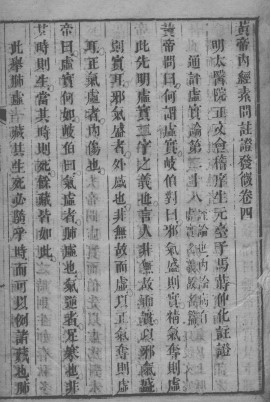 黃帝內經素問註證發微卷四
明太醫院正文會稽庠生元臺子馬蒔仲化註證
通評虛實論第二十八
黃帝問曰何謂虛實岐伯對曰邪氣盛則實精氣奪則虛
此先明虛實二字之義也言人非無故而實以邪氣盛
則實耳邪氣盛者外感也非無故而虛以正氣奪則虛
耳正氣虛者內傷也
帝曰虛實何如岐伯曰氣虛者肺虛也氣逆者足寒也非
其時則生當其時則死餘藏皆如此
此舉肺虛者藏其生死必隨乎時而可以例諸藏也肺